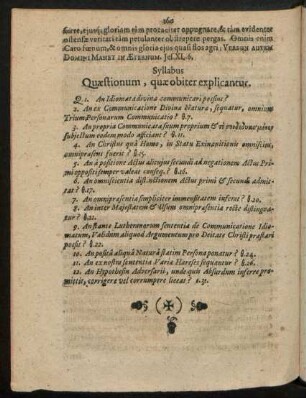 suirre, ejusq; gloriam tàm protaciter oppugnare, & tàm evidenter
ostensæ veritati tàm petulanter obstrepere pergat. Omnis enim
Caro fœnum, & omnis gloria ejus quasi flos agri; VERBUM AUTEM
DOMINI MANET IN ÆTERNUM. Jes. XL, 6.
Syllabus
Quæstionum, quæ obiter explicantur.
Q. 1. An Idiomata divina communicari possint?
2. An ex Communicatione Divinæ Naturæ, sequatur, omnium
Trium Personarum Communicatio? §. 7.
3. An propria Communicata suum proprium &
subjectum eodem modo afficiant? §. 10.
4. An Christus quà Homo, in Statu Exinanitionis omniscius,
omnipræsens fuerit? §.
5. An à positione Actus alicujus secundi ad negationem Actus Primi
oppositi semper valeat conseq. §. 16.
6. An omniscientia distinctionem actus primi & secundi admittat?
§. 17.
7. An omnipræsentia simpliciter immensitatem inferat? §. 20.
8. An inter Majestatem & Usum omnipræsentiæ recte distinguatur?
§. 21.
9. An stante Lutheranorum sententia de Communicatione Idiomatum,
Validum aliquod Argumentum pro Deitate Christi præstari
possit? §. 22.
10. An posita aliqua Natura statim Persona ponatur? §. 24.
11. An ex nostra sententia Variæ Hæreses sequantur? §. 26.
12. An Hypothesin Adversarii, unde quis Absurdum inferre
promittit, corrigere vel corrumpere liceat? §. 31.